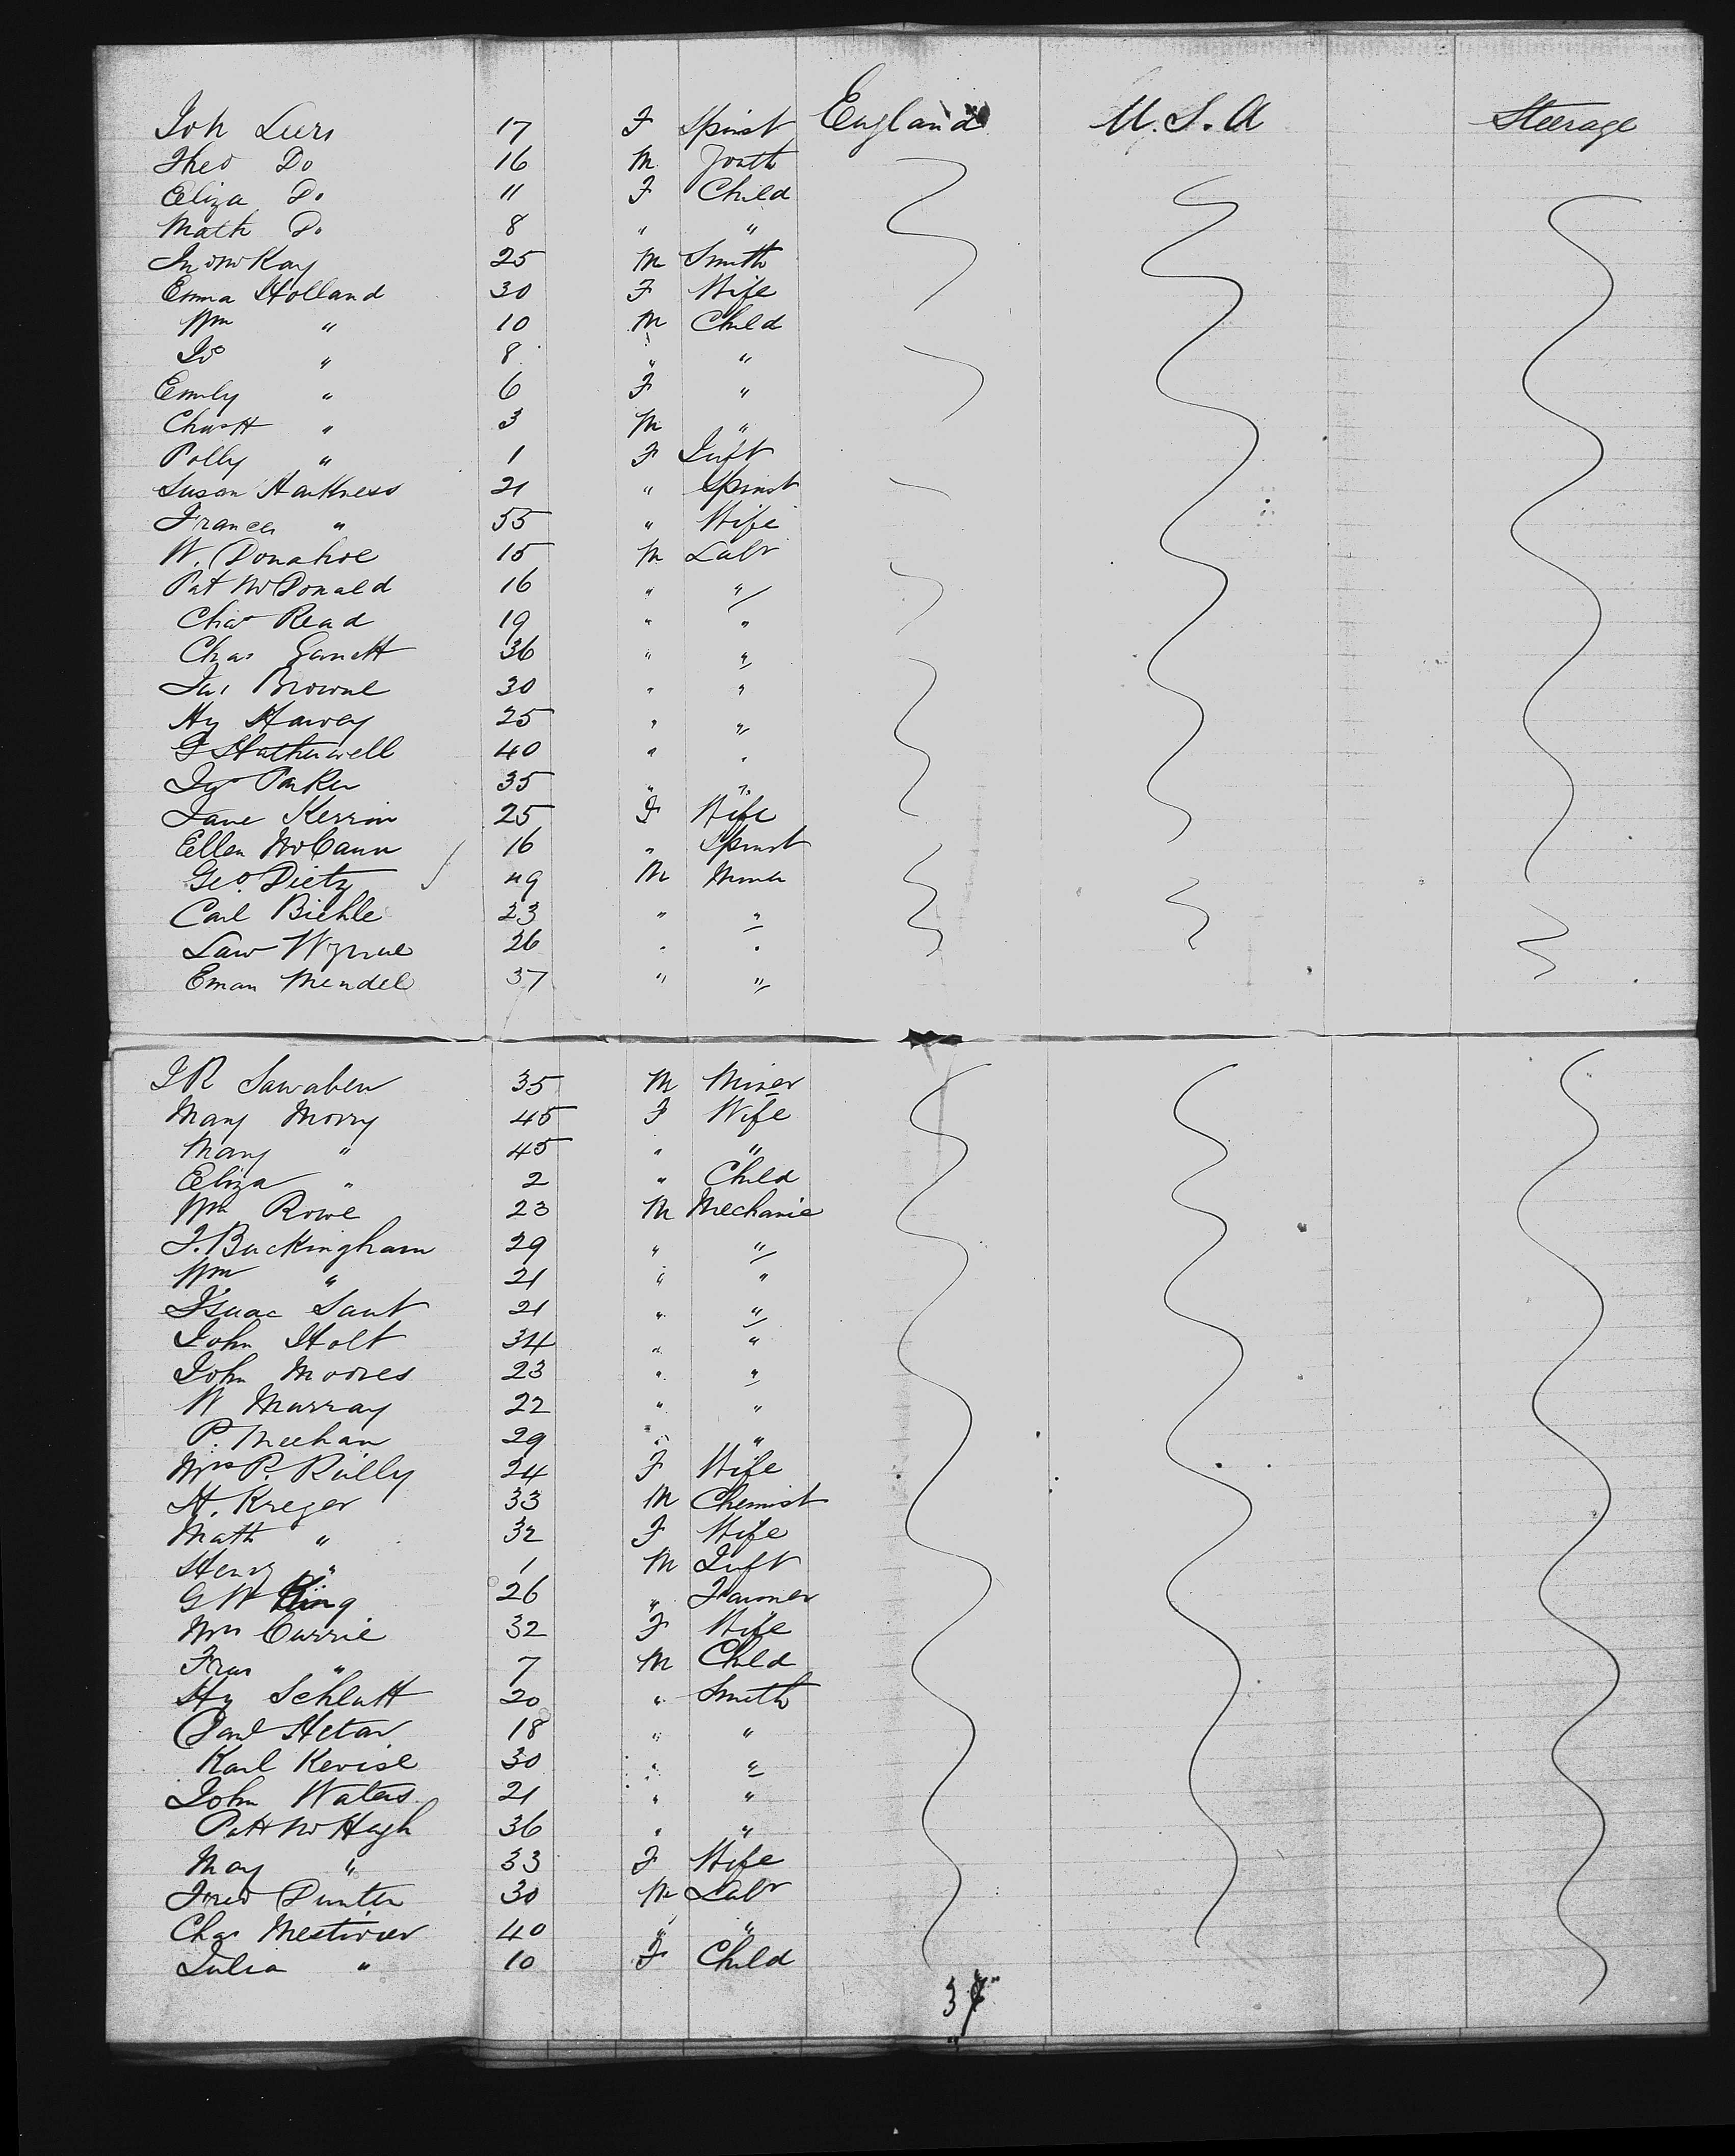 Joh Luers 17 F Spinst England U.S.A Steerage
Theo Do 16 M Youth
Eliza Do 11 F Child
Math Do 8 " "
Jno McKay 25 M Smith
Emma Holland 30 F Wife
Wm " 10 M Child
Jo " 8 " "
Emily " 6 F "
Chas H " 3 M "
Polly " 1 F Inft
Susan Harkness 21 " Spinst
Frances " 55 " Wife
W. Donahoe 15 M Labr
Pat McDonald 16 " "
Chas Read 19 " "
Chas Garnett 36 " "
Jas Browne 30 " "
Hy Harvey 25 " "
G Hatherwell 40 " "
Jas Parker 35 " "
Jane Kerrin 25 F Wife
Ellen McCann 16 " Spinst
Geo. Dietz 49 M Miner
Carl Biehle 23 " "
Law Wynne 26 " "
Eman Mendel 37 " "
J R 35 M Miner
Mary Morry 45 F Wife
Mary " 45 " "
Eliza " 2 " Child
Wm Rowe 23 M Mechanic
J. Buckingham 29 " "
Wm " 21 " "
Isaac Sant 21 " "
John Holt 34 " "
John Moores 23 " "
W Murray 22 " "
P. Meehan 29 " "
Mrs P. Rielly 24 F Wife
H. Kreger 33 M Chemist
Math " 32 F Wife
Henry " 1 M Inft
G W King 26 " Farmer
Mrs Currie 32 F Wife
Fras " 7 M Child
Hy Schlutt 20 " Smith
Paul 18 " "
Karl Kevisl 30 " "
John Waters 21 " "
Patt McHugh 36 " "
May " 33 F Wife
Fred Punter 30 M Labr
Chas 40 " "
Julia " 10 F Child